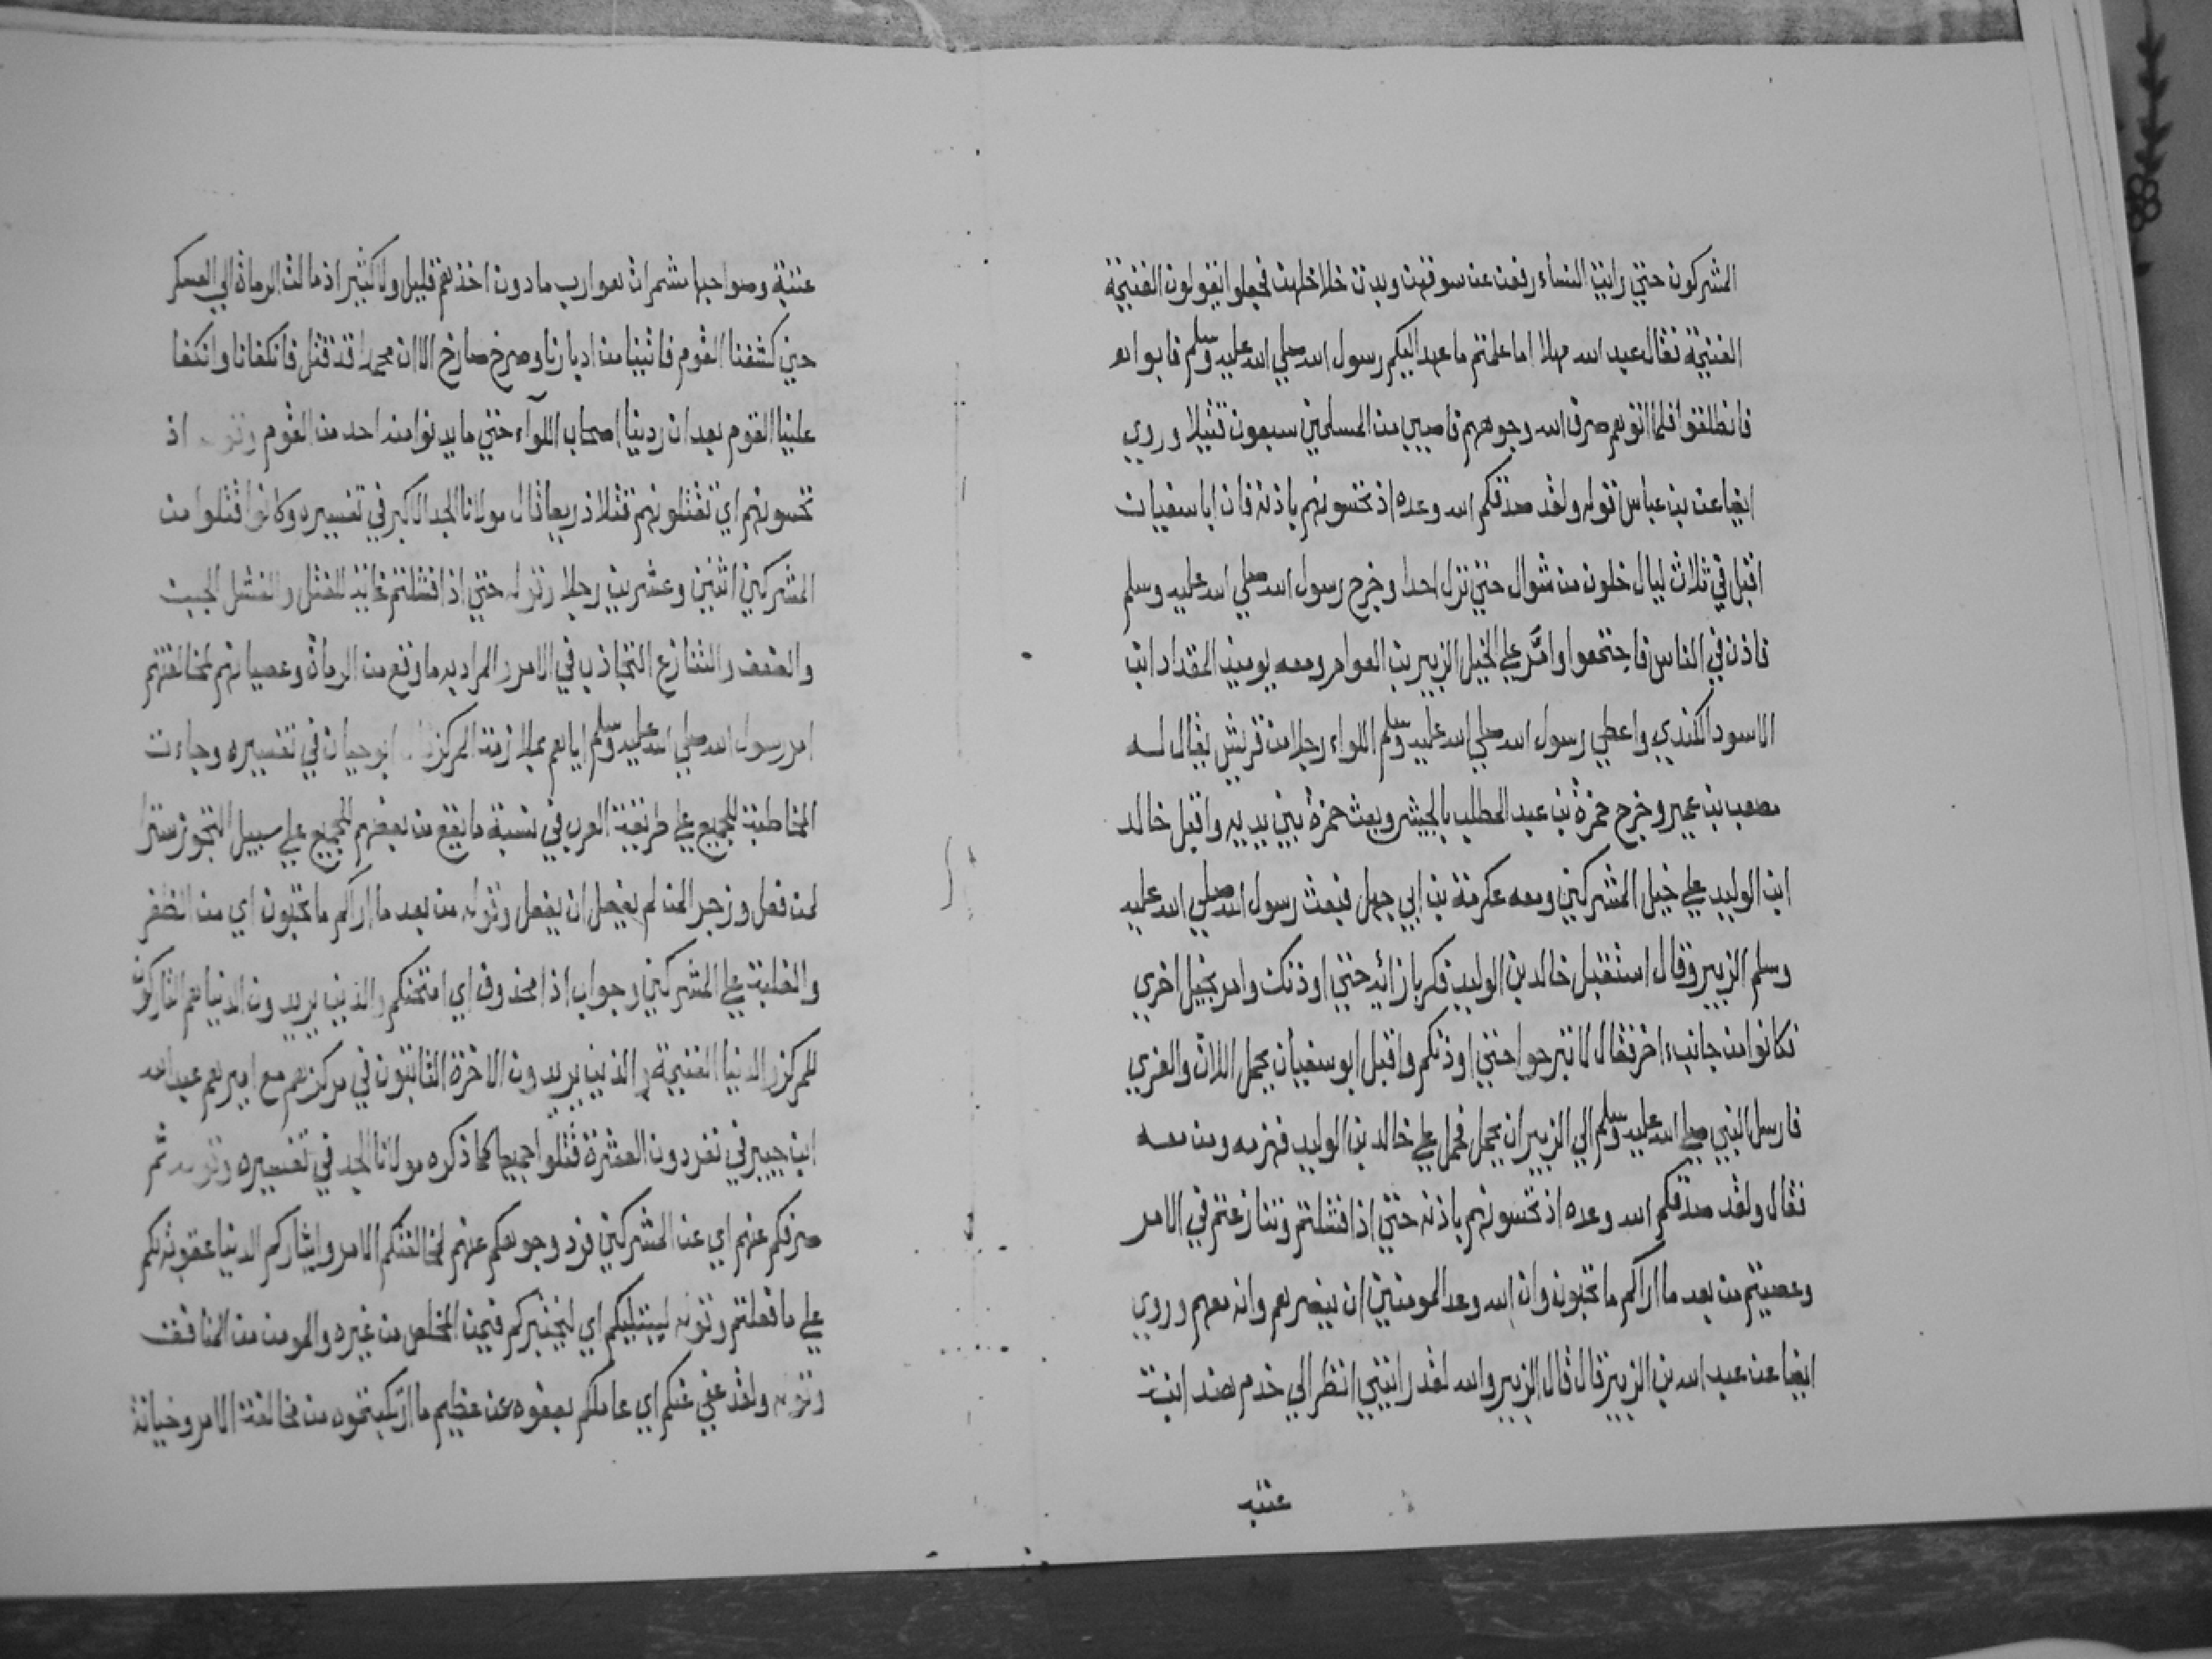 المشركون حتي رايت النساء رفعن عن سوقهن وبدت خلاخلهن فجعلوا يقولون الغنيمة
الغنيمة فقال عبد الله مهلا اما علمتم ما عهد اليكم رسول الله صلي الله عليه وسلم فابوا
فانطلقوا فلما اتوهم صرف الله وجوههم فاصيب من المسلمين سبعون قتيلا وروي
ايضا عن بن عباس قوله ولقد صدقكم الله وعده اذ تحسونهم باذنه فان ابا سفيان
اقبل في ثلاث ليال خلون من شوال حتي نزل احدا وخرج رسول الله صلي الله عليه وسلم
فاذن في الناس فاجتمعوا وامّر علي الخيل الزبير بن العوام ومعه يوميذ المقداد ابن
الاسود الكندي واعطي رسول الله صلي الله عليه وسلم اللواء رجلا من قريش يقال له
مصعب بن عمير وخرج حمزة بن عبد المطلب بالجيش وبعث حمزة بين يديه واقبل خالد
ابن الوليد علي خيل المشركين ومعه عكرمة بن ابي جهل فبعث رسول الله صلي الله عليه
وسلم الزبير وقال استقبل خالد بن الوليد فكن بازائه حتي اوذنك وامر بخيل اخري
فكانوا من جانب اخر فقال لا تبرحوا حتي اوذنكم واقبل ابو سفيان يحمل اللات والعزي
فارسل النبي صلي الله عليه وسلم الي الزبير ان يحمل فحمل علي خالد بن الوليد فهزمه ومن معه
فقال ولقد صدقكم الله وعده اذ تحسونهم باذنه حتي اذا فشلتم وتنازعتم في الامر
وعصيتم من بعد ما اراكم ما تحبون وان الله وعد المومنين ان ينصرهم وانه معهم وروي
ايضا عن عبد الله بن الزبير قال قال الزبير والله لقد رايتني انظر الي خدم هند ابنة
عتبة
عتبة وصواحبها مشمرات هوارب ما دون اخذهم قليل ولا كثير اذ مالت الرماة الي العسكر
حين كشفنا القوم فاتينا من ادبارنا وصرخ صارخ الا ان محمدا قد قتل فانكفانا وانكفا
علينا القوم بعد ان ردينا اصحاب اللوآء حتي ما يدنوا منه احد من القوم وقوله اذ
تحسونهم اي تقتلونهم قتلا ذريعا قال مولانا الجد الاكبر في تفسيره وكانوا قتلوا من
المشركين اثنين وعشرين رجلا وقوله حتي اذا فشلتم غاية للقتل والفشل الجبن
والضعف والتنازع التجاذب في الامر والمراد به ما وقع من الرماة وعصيانهم لمخالفتهم
امر رسول الله صلي الله عليه وسلم اياهم بملازمة المركز قال ابو حيان في تفسيره وجاءت
المخاطبة للجميع علي طريقة العرب في نسبة ما يقع من بعضهم للجميع علي سبيل التجوز سترا
لمن فعل وزجر المن لم يفعل ان يفعل وقوله من بعد ما اراكم ما تحبون اي من الظفر
والغلبة علي المشركين وجواب اذا محذوف اي امتحنكم والذين يريدون الدنيا هم التاركون
للمركز والدنيا الغنيمة والذين يريدون الاخرة الثابتون في مركزهم مع اميرهم عبد الله
ابن جبير في نفر دون العشرة قتلوا جميعا كما ذكره مولانا الجد في تفسيره وقوله ثم
صرفكم عنهم اي عن المشركين فرد وجوهكم عنهم لمخالفتكم الامر وايثاركم الدنيا عقوبة لكم
علي ما فعلتم وقوله ليبتليكم اي ليختبركم فيمن المخلص من غيره والمومن من المنافق
وقوله ولقد عفي عنكم اي عاملكم بعفوه عن عظيم ما ارتكبتموه من مخالفة الامر وخيانة